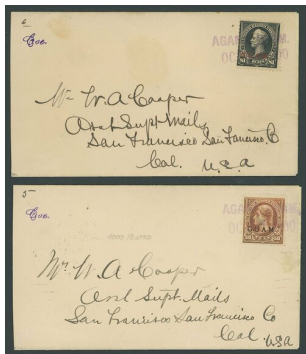 6
Gov.
AGA
OC
$1 $1
Mr W. A Cooper
Asst Supt Mails
San Francisco San Francisco Co
Cal. U.S.A
5
Gov.
AGA
OC
GUAM
Mr. W. A Cooper
Asst Supt. Mails
San Francisco San Francisco Co
Cal USA